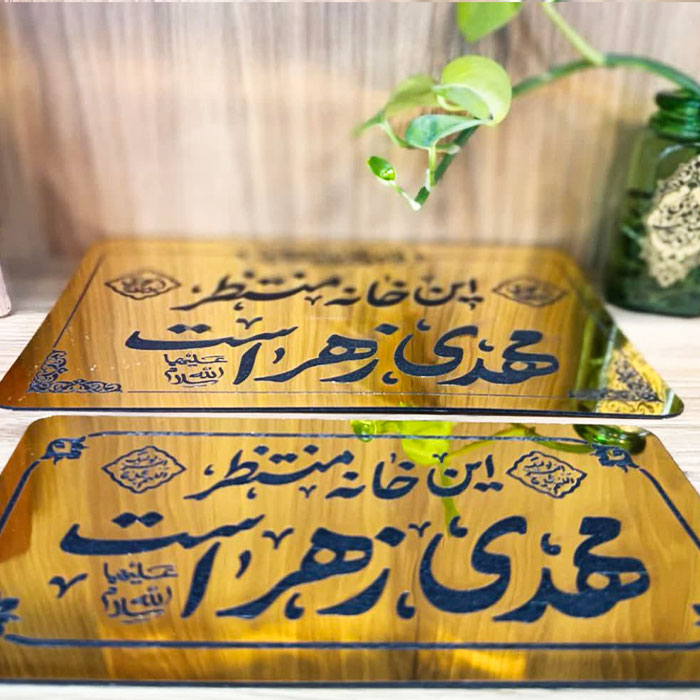 این خانه منتظر
مهدی زهراست
علیهما
السلام
این خانه منتظر
مهدی زهراست
علیهما
السلام